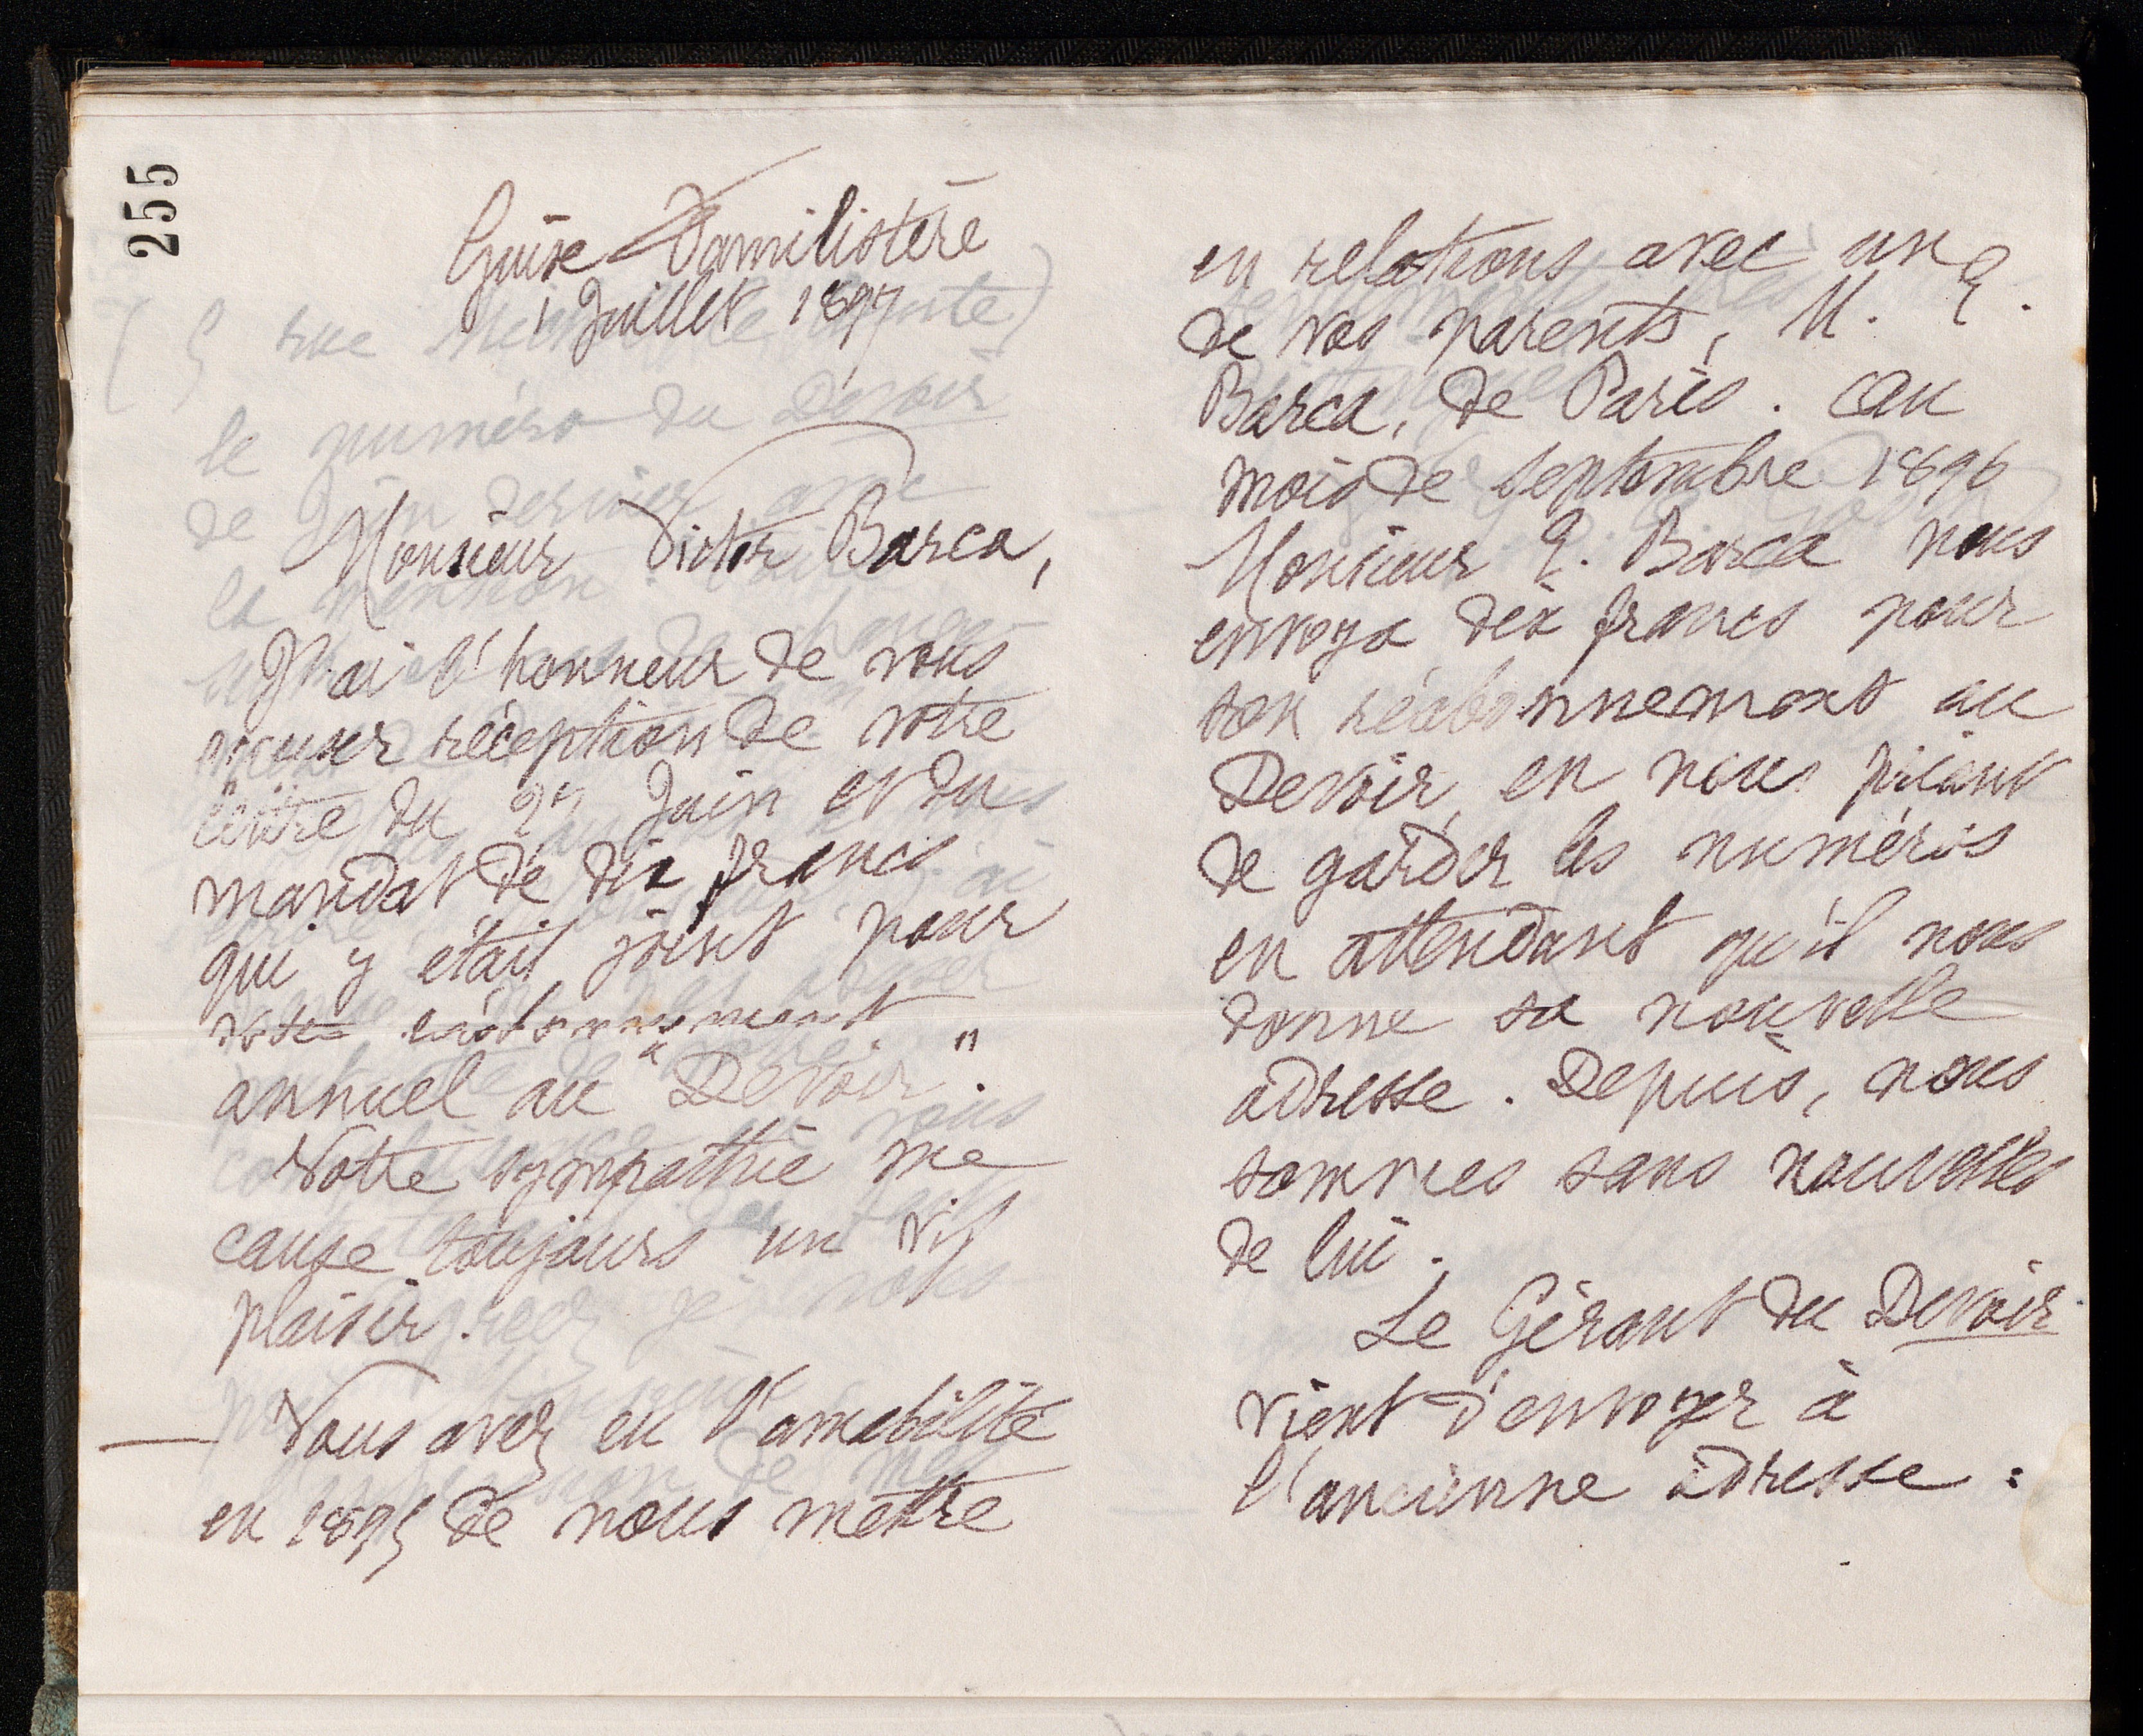 255
Guise Familistère
1 Juillet 1897
Monsieur Victor Barca,
J'ai l'honneur de vous
accuser réception de votre
lettre du 27 Juin et du
mandat de dix francs
qui y était joint pour
votre réabonnement
annuel au "Devoir".
Votre sympathie me
cause toujours un vif
plaisir.
— Vous avez eu l'amabilité
en 1895 de nous mettre
en relations avec un
de vos parents, M. E.
Barca, de Paris. Au
mois de septembre 1896
Monsieur E. Barca nous
envoya dix francs pour
son réabonnement au
Devoir, en nous priant
de garder les numéros
en attendant qu'il nous
donne sa nouvelle
adresse. Depuis, nous
sommes sans nouvelles
de lui.
Le Gérant du Devoir
vient d'envoyer à
l'ancienne adresse :